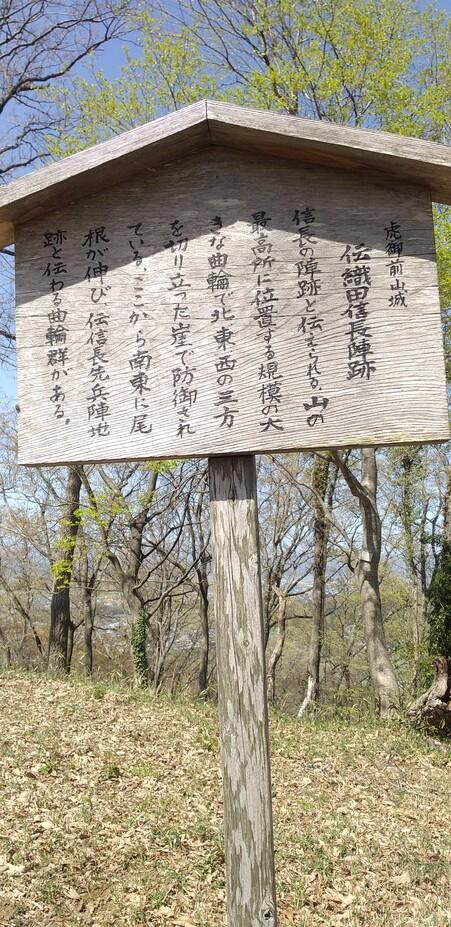 虎御前山城
伝織田信長陣跡
信長の陣跡と伝えられる。山の
最高所に位置する規模の大
きな曲輪で北東西の三方
を切り立った崖で防御され
ている。ここから南東に尾
根が伸び、伝信長先兵陣地
跡と伝わる曲輪群がある。